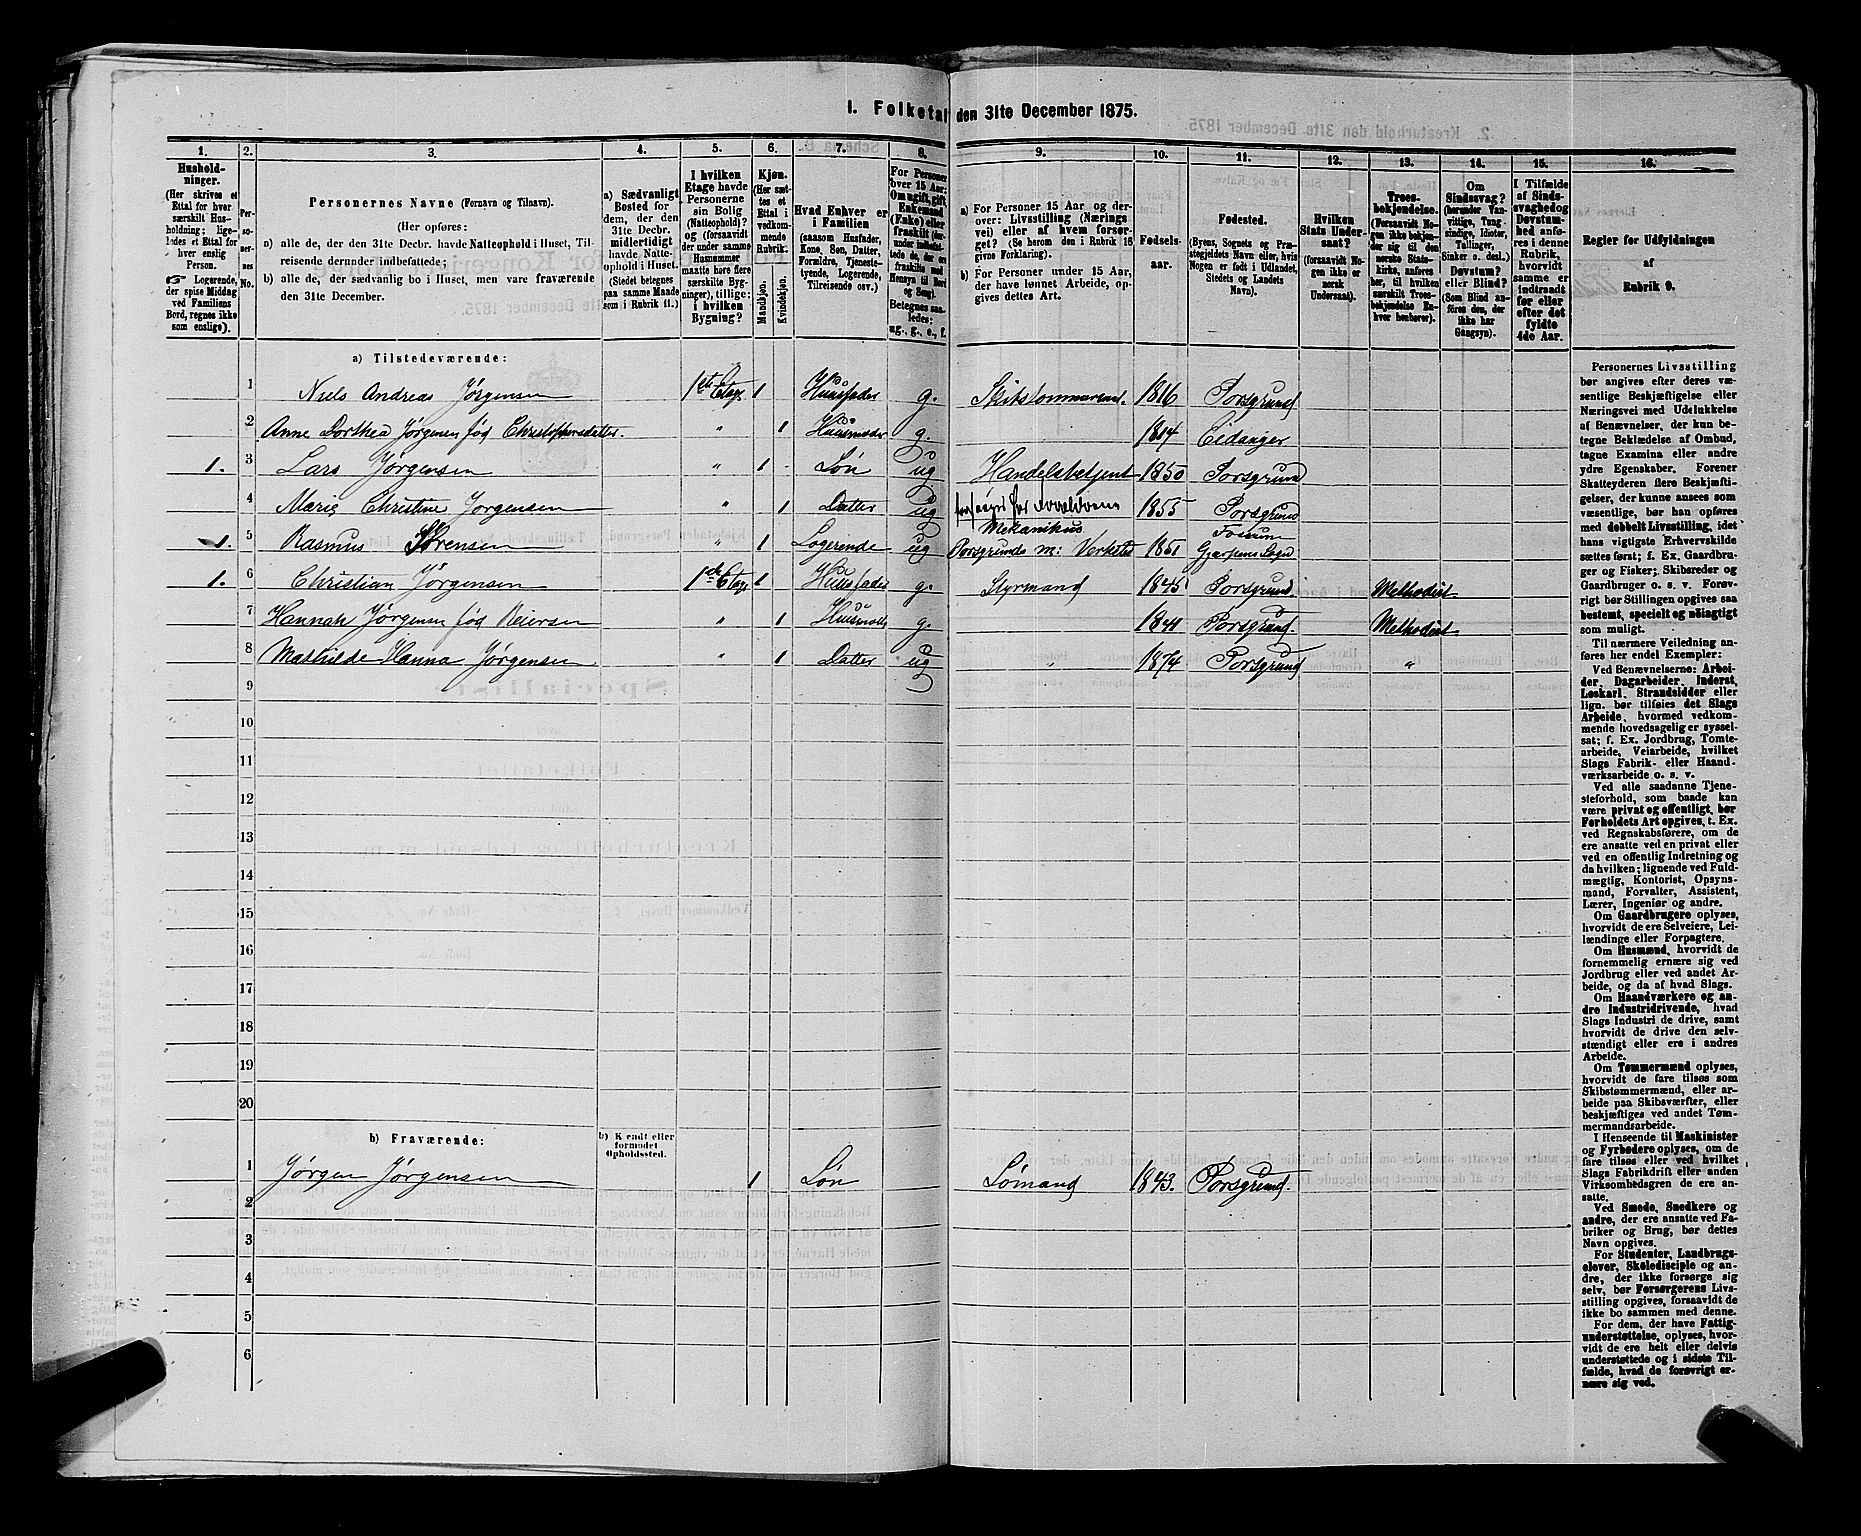 I. Folketal den 31te December 1875.
1. 2. 3. 4. 5. 6. 7. 8. 9. 10. 11. 12. 13. 14. 15. 16.
Husholdninger.
(Her skrives et
Ettal for hver
særskilt Husholdning; ligeledes et Ettal for
hver enslig
Person.
☞ Logerende,
der spise Middag
ved Familiens
Bord, regnes ikke
som enslige).
Personernes No.
Personernes Navne (Fornavn og Tilnavn).
(Her opføres:
a) alle de, der den 31te Decbr. havde Natteophold i Huset, Tilreisende derunder indbefattede;
b) alle de, der sædvanlig bo i Huset, men vare fraværende
den 31te December.
a) Sædvanligt
Bosted for
dem, der den
31te Decbr.
midlertidigt
havde Natteophold i Huset.
(Stedet betegnes
paa samme Maade
som i Rubrik 11.)
I hvilken
Etage havde
Personerne
sin Bolig
(Natteophold)?
og (forsaavidt
der under samme
Husnummer
maatte høre flere
særskilte Bygninger), tillige:
i hvilken
Bygning?
Kjøn.
(Her sættes et
Ettal i
vedkommende
Rubrik.
Mandkjøn.
Kvindekjøn.
Hvad Enhver er
i Familien
(saasom Husfader,
Kone, Søn, Datter,
Forældre, Tjenestetyende, Logerende,
Tilreisende osv.)
For Personer
over 15 Aar:
Om ugift, gift,
Enkemand
(Enke) eller
fraskilt
Betegnes saaledes:
ug., g., e., f.
a) For Personer 15 Aar og derover: Livsstilling (Næringsvei) eller af hvem forsørget? (Se herom den i Rubrik 16
givne Forklaring).
b) For Personer under 15 Aar,
der have lønnet Arbeide, opgives dettes Art.
Fødselsaar.
Fødested.
(Byens, Sognets og Præstegjeldets Navn eller, hvis
Nogen er født i Udlandet,
Stedets og Landets
Navn).
Hvilken
Stats Undersaat?
(forsaavidt Nogen ikke er
norsk
Undersaat).
Troesbekjendelse.
(Forsaavidt Nogen ikke bekjender sig til den
norske Statskirke, anføres
her, til hvilket
særskilt Troesbekjendelse Enhver henhører).
Om
Sindssvag?
(herunder Vanvittige, Tungsindige, Idioter,
Tullinger,
Sinker o. desl.)
Døvstum?
eller Blind?
(Som Blind anføres den, der
ikke har
Gangsyn).
I Tilfælde
af Sindssvaghed og
Døvstumhed anføres i denne
Rubrik,
hvorvidt
samme er
indtraadt
før eller
efter det
fyldte
4de Aar.
Regler for Udfyldningen
af
Rubrik 9.
a) Tilstedeværende:
1 Niels Andreas Jørgensen 1ste Etage 1 Huusfader g. Skibstømmermand. 1816 Porsgrund
2 Anne Dorthea Jørgensen fød Christophersdatter. " 1 Huusmoder g. 1814 Eidanger
1. 3 Lars Jørgensen " 1 Søn ug Handelsbetjent 1850 Porsgrund
4 Marie Christine Jørgensen " 1 Datter ug forsørges for Forældrene 1855 Porsgrund
1. 5 Rasmus Sørensen " 1 Logerende ug Mekanikus Porsgrunds m: Verksted 1851 Fossum Gjerpens Sogn
1. 6 Christian Jørgensen 1ste Etage 1 Huusfader g. Styrmand 1845 Porsgrund. Methodist
7 Hannah Jørgensen fød Reiersen " 1 Huusmoder g. 1841 Porsgrund. Methodist
8 Mathilde Hanna Jørgensen " 1 Datter ug " 1874 Porsgrund "
9
10
11
12
13
14
15
16
17
18
19
20
b) Fraværende:
b) Kjendt eller
formodet
Opholdssted.
1 Jørgen Jørgensen 1 Søn Sømand 1843. Porsgrund.
2
3
4
5
6
Personernes Livsstilling
bør angives efter deres væsentlige Beskjæftigelse eller
Næringsvei med Udelukkelse
af Benævnelser, der kun betegne Beklædelse af Ombud,
tagne Examina eller andre
ydre Egenskaber. Forener
Skatteyderen flere Beskjæftigelser, der kunne ansees som
væsentlige, bør han opføres
med dobbelt Livsstilling, idet
hans vigtigste Erhvervskilde
sættes først; f. Ex. Gaardbruger og Fisker; Skibsreder og
Gaardbruger o. s. v. Forøvrigt bør Stillingen opgives saa
bestemt, specielt og nøiagtigt
som muligt.
Til nærmere Veiledning anføres her endel Exempler:
Ved Benævnelserne: Arbeider, Dagarbeider, Inderst,
Løskarl, Strandsidder eller
lign. bør tilføies det Slags
Arbeide, hvormed vedkommende hovedsagelig er sysselsat; f. Ex. Jordbrug, Tomtearbeide, Veiarbeide, hvilket
Slags Fabrik- eller Haandværksarbeide o. s. v.
Ved alle saadanne Tjenesteforhold, som baade kan
være privat og offentligt, bør
Forholdets Art opgives, t. Ex.
ved Regnskabsførere, om de
ere ansatte ved en privat eller
ved en offentlig Indretning og
da hvilken; lignende ved Fuldmægtig, Kontorist, Opsynsmand, Forvalter, Assistent,
Lærer, Ingeniør og andre.
Om Gaardbrugere oplyses,
hvorvidt de ere Selveiere, Leilændinge eller Forpagtere.
Om Husmænd, hvorvidt de
fornemmelig ernære sig ved
Jordbrug eller ved andet Arbeide, og da af hvad Slags.
Om Haandværkere og andre Industridrivende, hvad
Slags Industri de drive, samt
hvorvidt de drive den selvstændigt eller ere i andres
Arbeide.
Om Tømmermænd oplyses,
hvorvidt de fare tilsøs som
Skibstømmermænd, eller arbeide paa Skibsværfter, eller
beskjæftiges ved andet Tømmermandsarbeide.
I Henseende til Maskinister
og Fyrbødere oplyses, om de
fare tilsøs eller ved hvilket
Slags Fabrikdrift eller anden
Virksomhedsgren de ere ansatte.
Ved Smede, Snedkere og
andre, der ere ansatte ved Fabriker og Brug, bør dettes
Navn opgives.
For Studenter, Landbrugselever, Skoledisciple og andre, der ikke forsørge sig
selv, bør Forsørgerens Livsstilling opgives, forsaavidt de
ikke bo sammen med denne.
For dem, der have Fattigunderstøttelse, oplyses, hvorvidt de ere helt eller delvis
understøttede og i sidste Tilfælde, hvad de forøvrigt ernære sig ved.